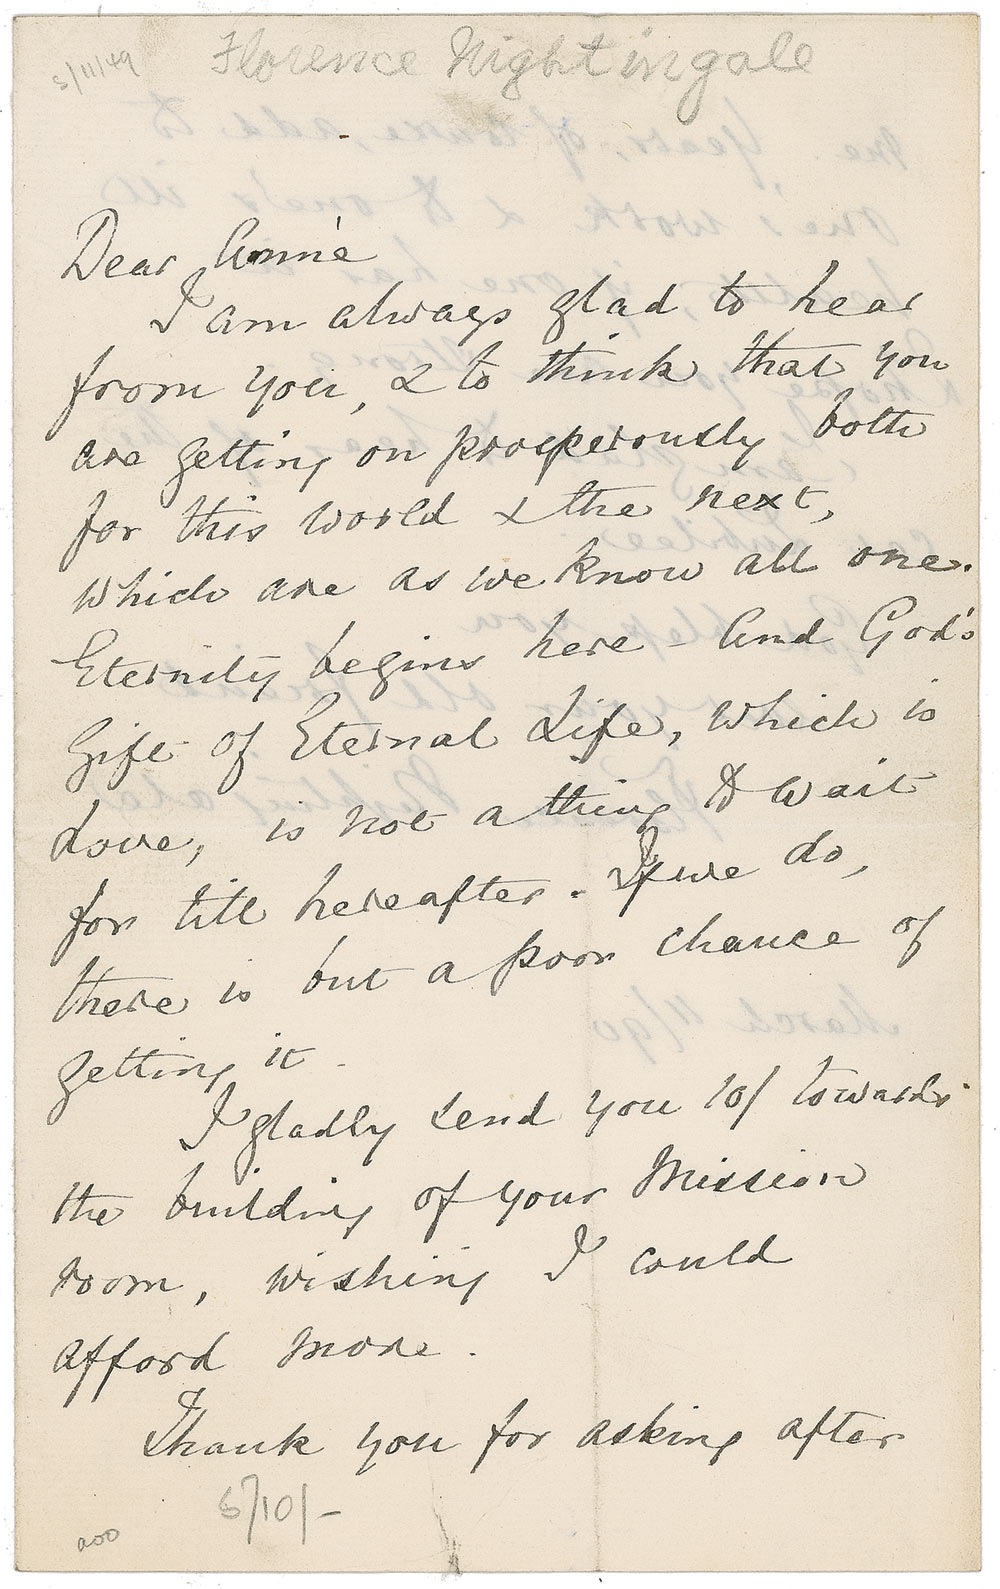 3/11/49
Florence Nightingale
Dear Annie
I am always glad to hear
from you, & to think that you
are getting on prosperously both
for this world & the next,
which are as we know all one.
Eternity begins here - And God's
Gift of Eternal Life, which is
Love, is not a thing to wait
for till hereafter. If we do,
there is but a poor chance of
getting it.
I gladly send you 10/ towards
the building of your Mission
room, wishing I could
afford more.
Thank you for asking after